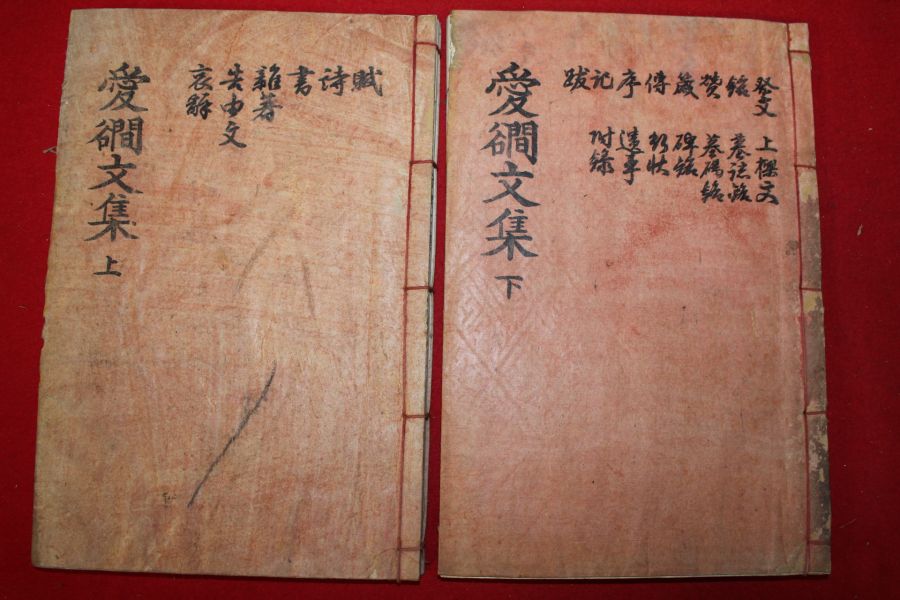 賦
詩
書
雜著
告由文
哀辭
愛磵文集 上
祭文 上樑文
銘 墓誌銘
贊 墓碣銘
箴 碑銘
傳 行狀
序 遺事
記 附錄
跋
愛磵文集 下